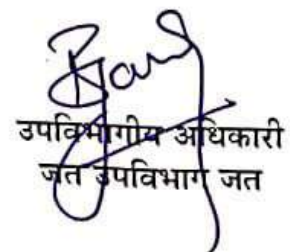 उपविभागीय अधिकारी
जत उपविभाग जत